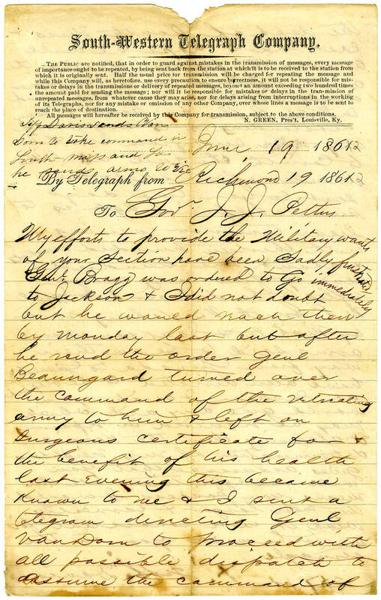 South-Western Telegraph Company.
THE PUBLIC are notified, that in order to guard against mistakes in the transmission of messages, every message
of importance ought to be repeated, by being sent back from the station at which it is to be received to the station from
which it is originally sent. Half the usual price for transmission will be charged for repeating the message and
while this Company will, as heretofore, use every precaution to ensure correctness, it will not be responsible for mis-
takes or delays in the transmission or delivery of repeated messages, beyond an amount exceeding two hundred times
the amount paid for sending the message; nor will it be responsible for mistakes or delays in the transmission of
unrepeated messages, from whatever cause they may arise, nor for delays arising from interruptions in the working
of its Telegraphs, nor for any mistake or omission of any other Company, over whose lines a message is to be sent to
reach the place of destination.
All messages will hereafter be received by this Company for transmission, subject to the above conditions.
N. GREEN, Pres't, Louisville, Ky.
Davis sends Van
Dorn to take command in
South Miss and
he sends arms to
June 19 1862
By Telegraph from Richmond 19 1862
To Gov J. J. Pettus
My efforts to provide the Military wants
of your Section have been Sadly frustrated
Genl Bragg was ordered to Go immediately
to Jackson & I did not doubt
but he would reach there
by Monday last but after
he recd the order Genl
Beauregard turned over
the command of the retreating
army to him & left on
Surgeons certificate for
the benefit of his health
last Evening this became
Known to me & I sent a
telegram directing Genl
Van Dorn to proceed with
all possible dispatch to
assume the command of